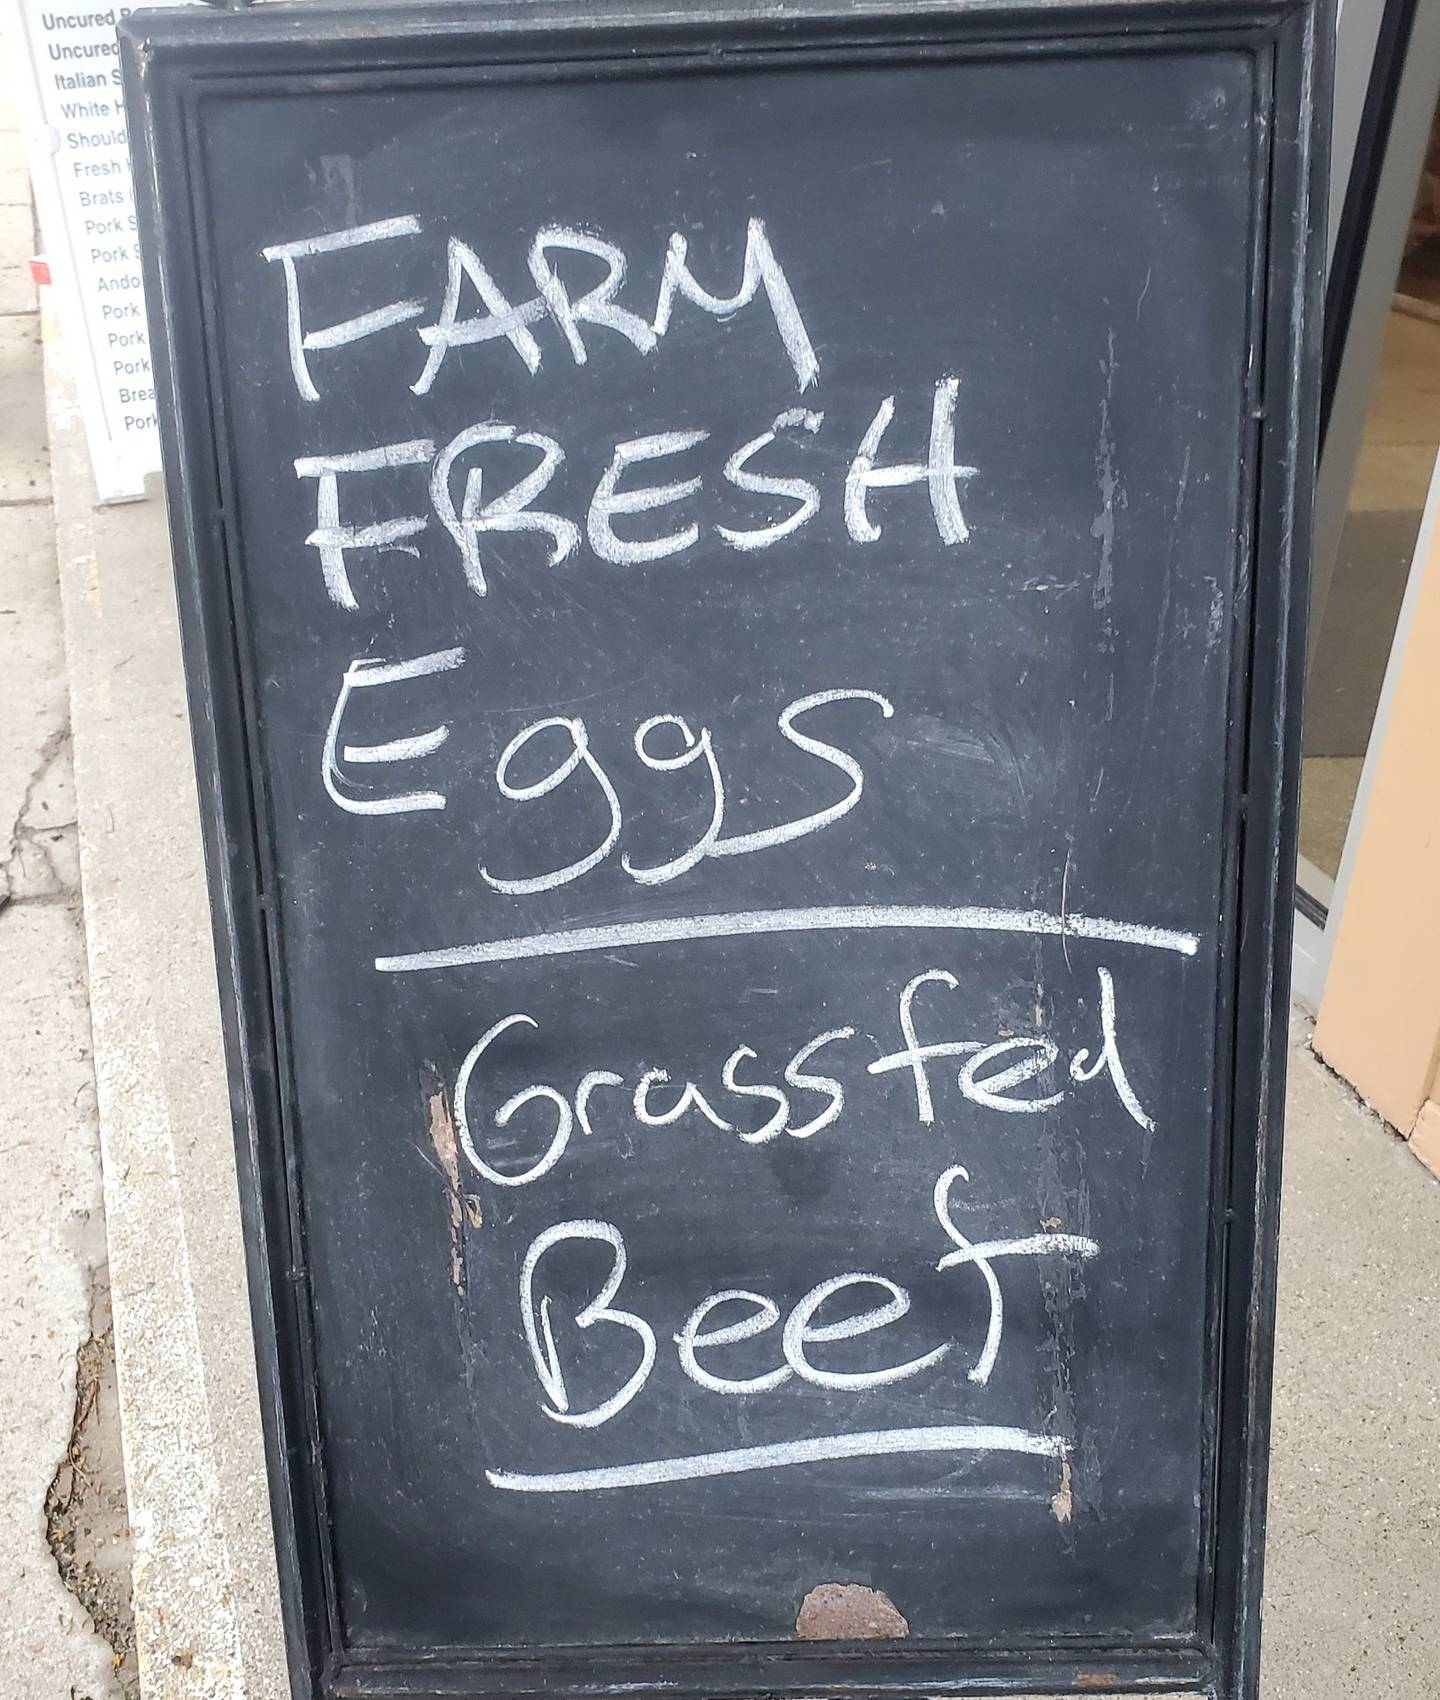 Uncured
Uncured
Italian
White
Fresh
Brats
Pork
Pork
Pork
Pork
Pork
Pork
FARM
FRESH
Eggs
Grassfed
Beef